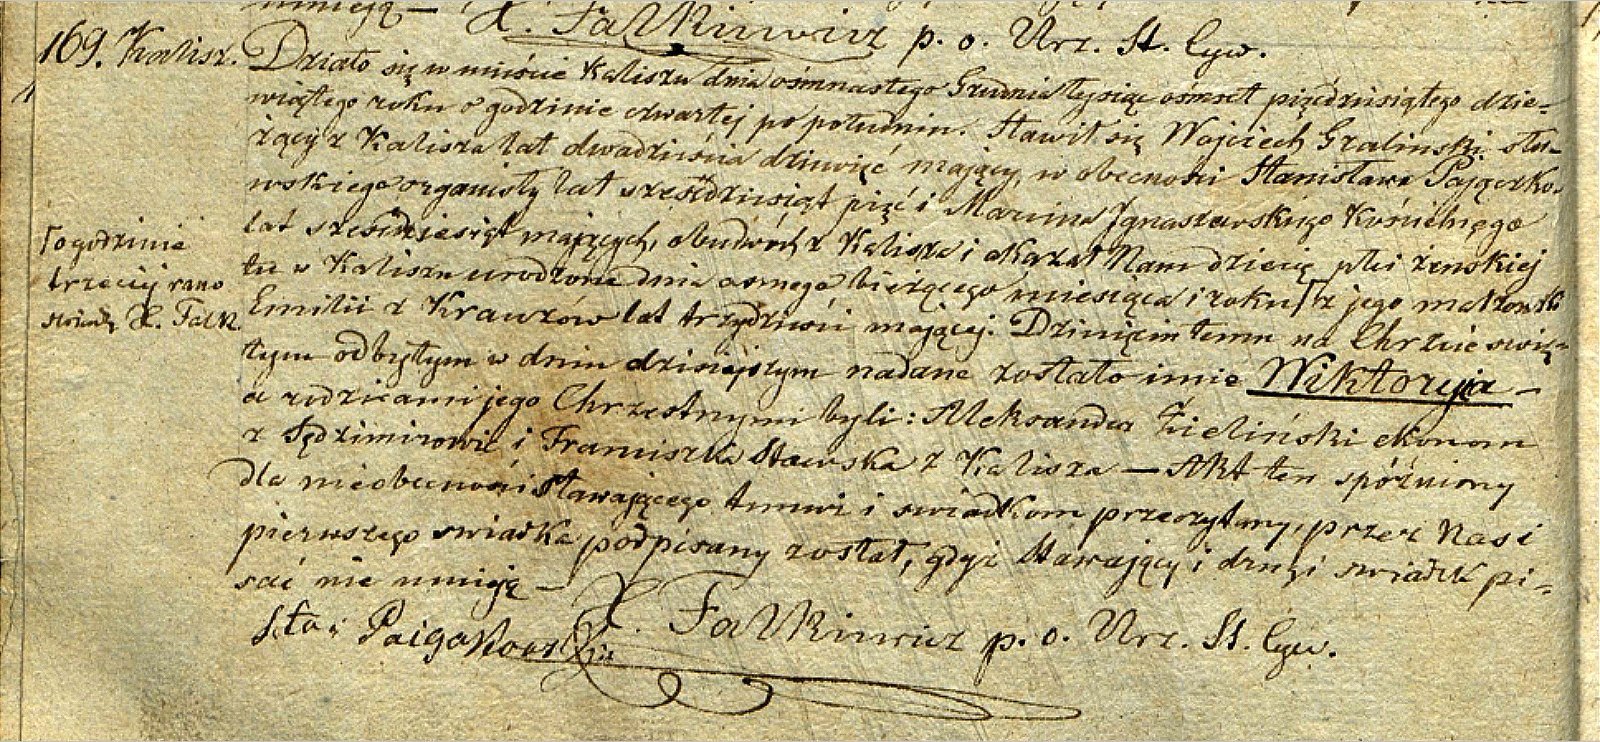 umieją —
X. Falkiewicz p. o. Urz. St. Cyw.
169. Kalisz. Działo się w mieście Kaliszu dnia ośmnastego Grudnia tysiąc ośmset pięćdziesiątego dzie-
wiątego roku o godzinie czwartej po południu. Stawił się Wojciech Graliński słu-
żący z Kalisza lat dwadzieścia dziewięć mający, w obecności Stanisława Pajączko-
wskiego organisty lat sześćdziesiąt pięć i Marcina Ignaszewskiego Kościelnego
lat sześćdziesiąt mających, obudwóch z Kalisza i okazał Nam dziecię płci żeńskiej
tu w Kaliszu urodzone dnia osmego bieżącego miesiąca i roku ſ z jego małżonki
Emilii z Krauzów lat trzydzieści mającej. Dziecięciu temu na Chrzcie świę-
tym odbytym w dniu dzisiejszym nadane zostało imie Wiktoryja —
a rodzicami jego Chrzestnymi byli: Aleksander Zieliński ekonom
z Sędzimirowic i Franciszka Stawska z Kalisza — Akt ten spóźniony
dla nieobecności stawającego temuż i swiadkom przeczytany, przez Nas i
pierwszego swiadka podpisany został, gdyż Stawający i drugi swiadek pi-
sać nie umieją —
X. Falkiewicz p. o. Urz. St. Cyw.
ſ o godzinie
trzeciej rano
X. Falk.